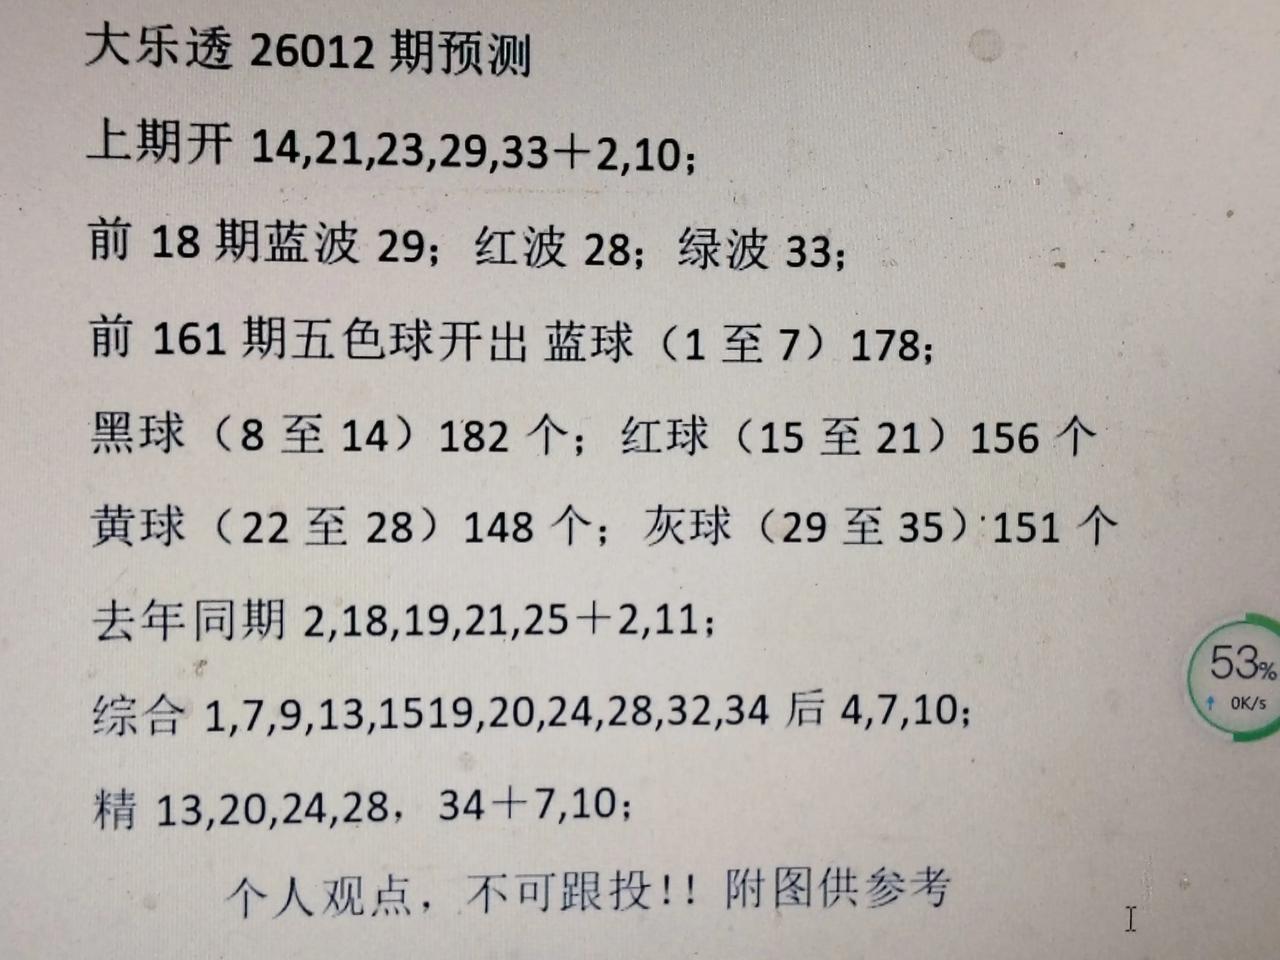 大乐透 26012 期预测
上期开 14,21,23,29,33＋2,10；
前 18 期蓝波 29；红波 28；绿波 33；
前 161 期五色球开出 蓝球（1 至 7）178；
黑球（8 至 14）182 个；红球（15 至 21）156 个
黄球（22 至 28）148 个；灰球（29 至 35）151 个
去年同期 2,18,19,21,25＋2,11；
53%
0K/s
综合 1,7,9,13,1519,20,24,28,32,34 后 4,7,10；
精 13,20,24,28，34＋7,10；
个人观点，不可跟投！！附图供参考